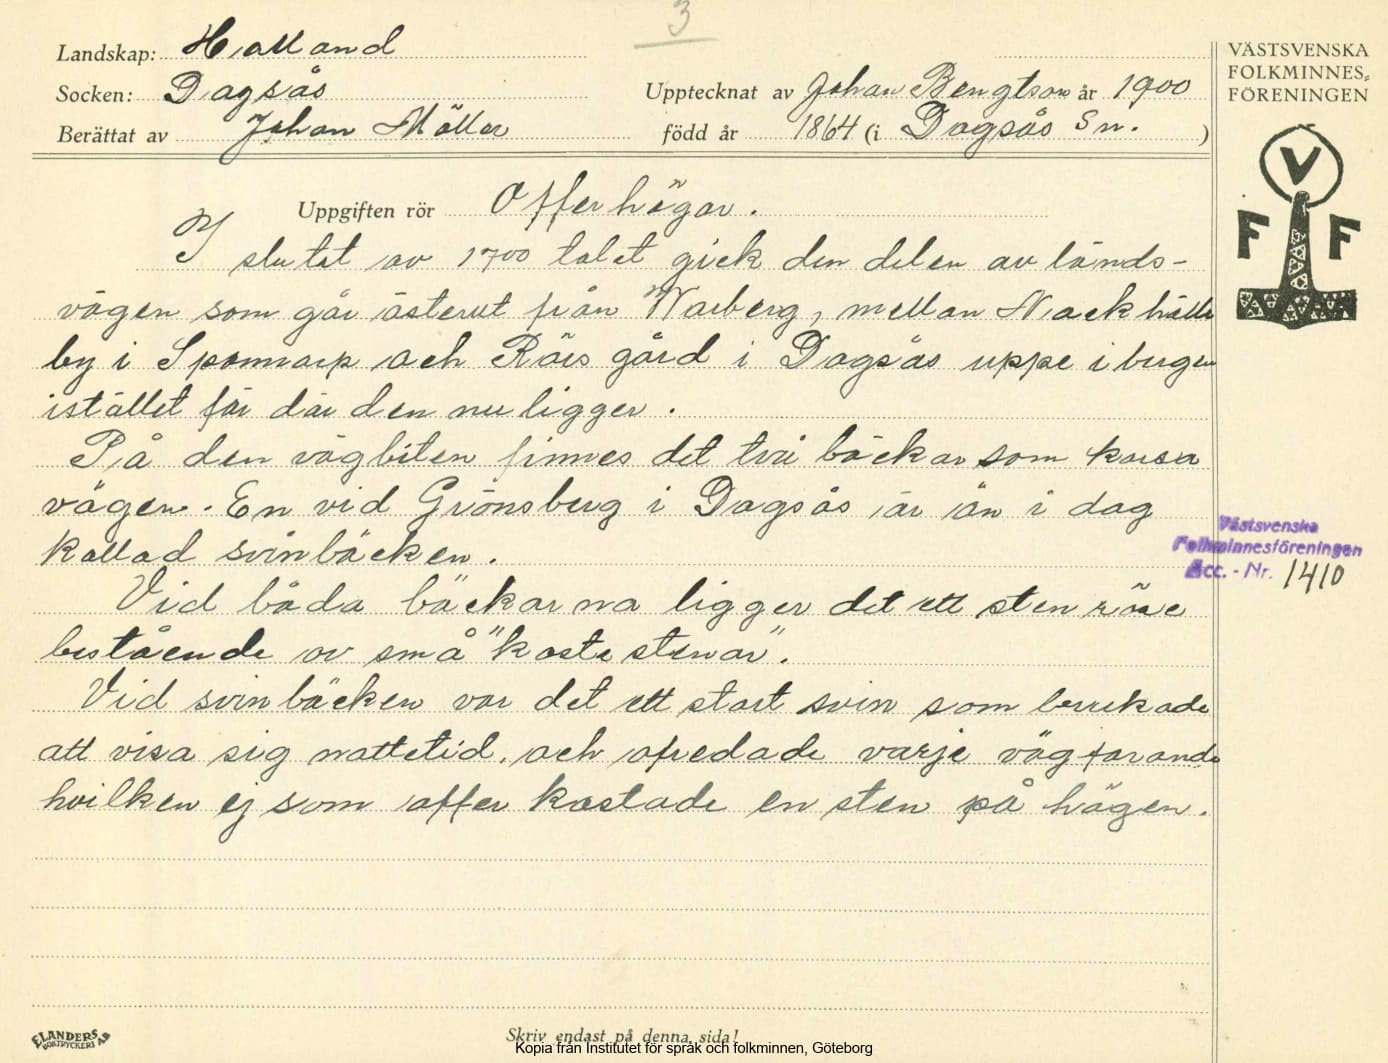 3
Landskap: Halland
Socken: Dagsås
Upptecknat av Johan Bengtson år 1900
Berättat av Johan Möller
född år 1864 (i Dagsås Sn. )
VÄSTSVENSKA
FOLKMINNES-
FÖRENINGEN
V
F F
Uppgiften rör Offerhögar.
I slutet av 1700 talet gick den delen av lands-
vägen som går österut från Warberg, mellan Nackhälle
by i Sponnarp och Rörs gård i Dagsås uppe i bergen
istället för där den nu ligger.
På den vägbiten finnes det två bäckar som korsar
vägen. En vid Grönsberg i Dagsås är än i dag
kallad svinbäcken.
Vid båda bäckarna ligger det ett sten röse
bestående av små "kaste stenar".
Vid svinbäcken var det ett stort svin som brukade
att visa sig nattetid, och ofredade varje vägfarande
hvilken ej som offer kastade en sten på högen.
Västsvenska
Folkminnesföreningen
Acc. - Nr. 1410
ELANDERS
BOKTRYCKERI AB
Skriv endast på denna sida!
Kopia från Institutet för språk och folkminnen, Göteborg